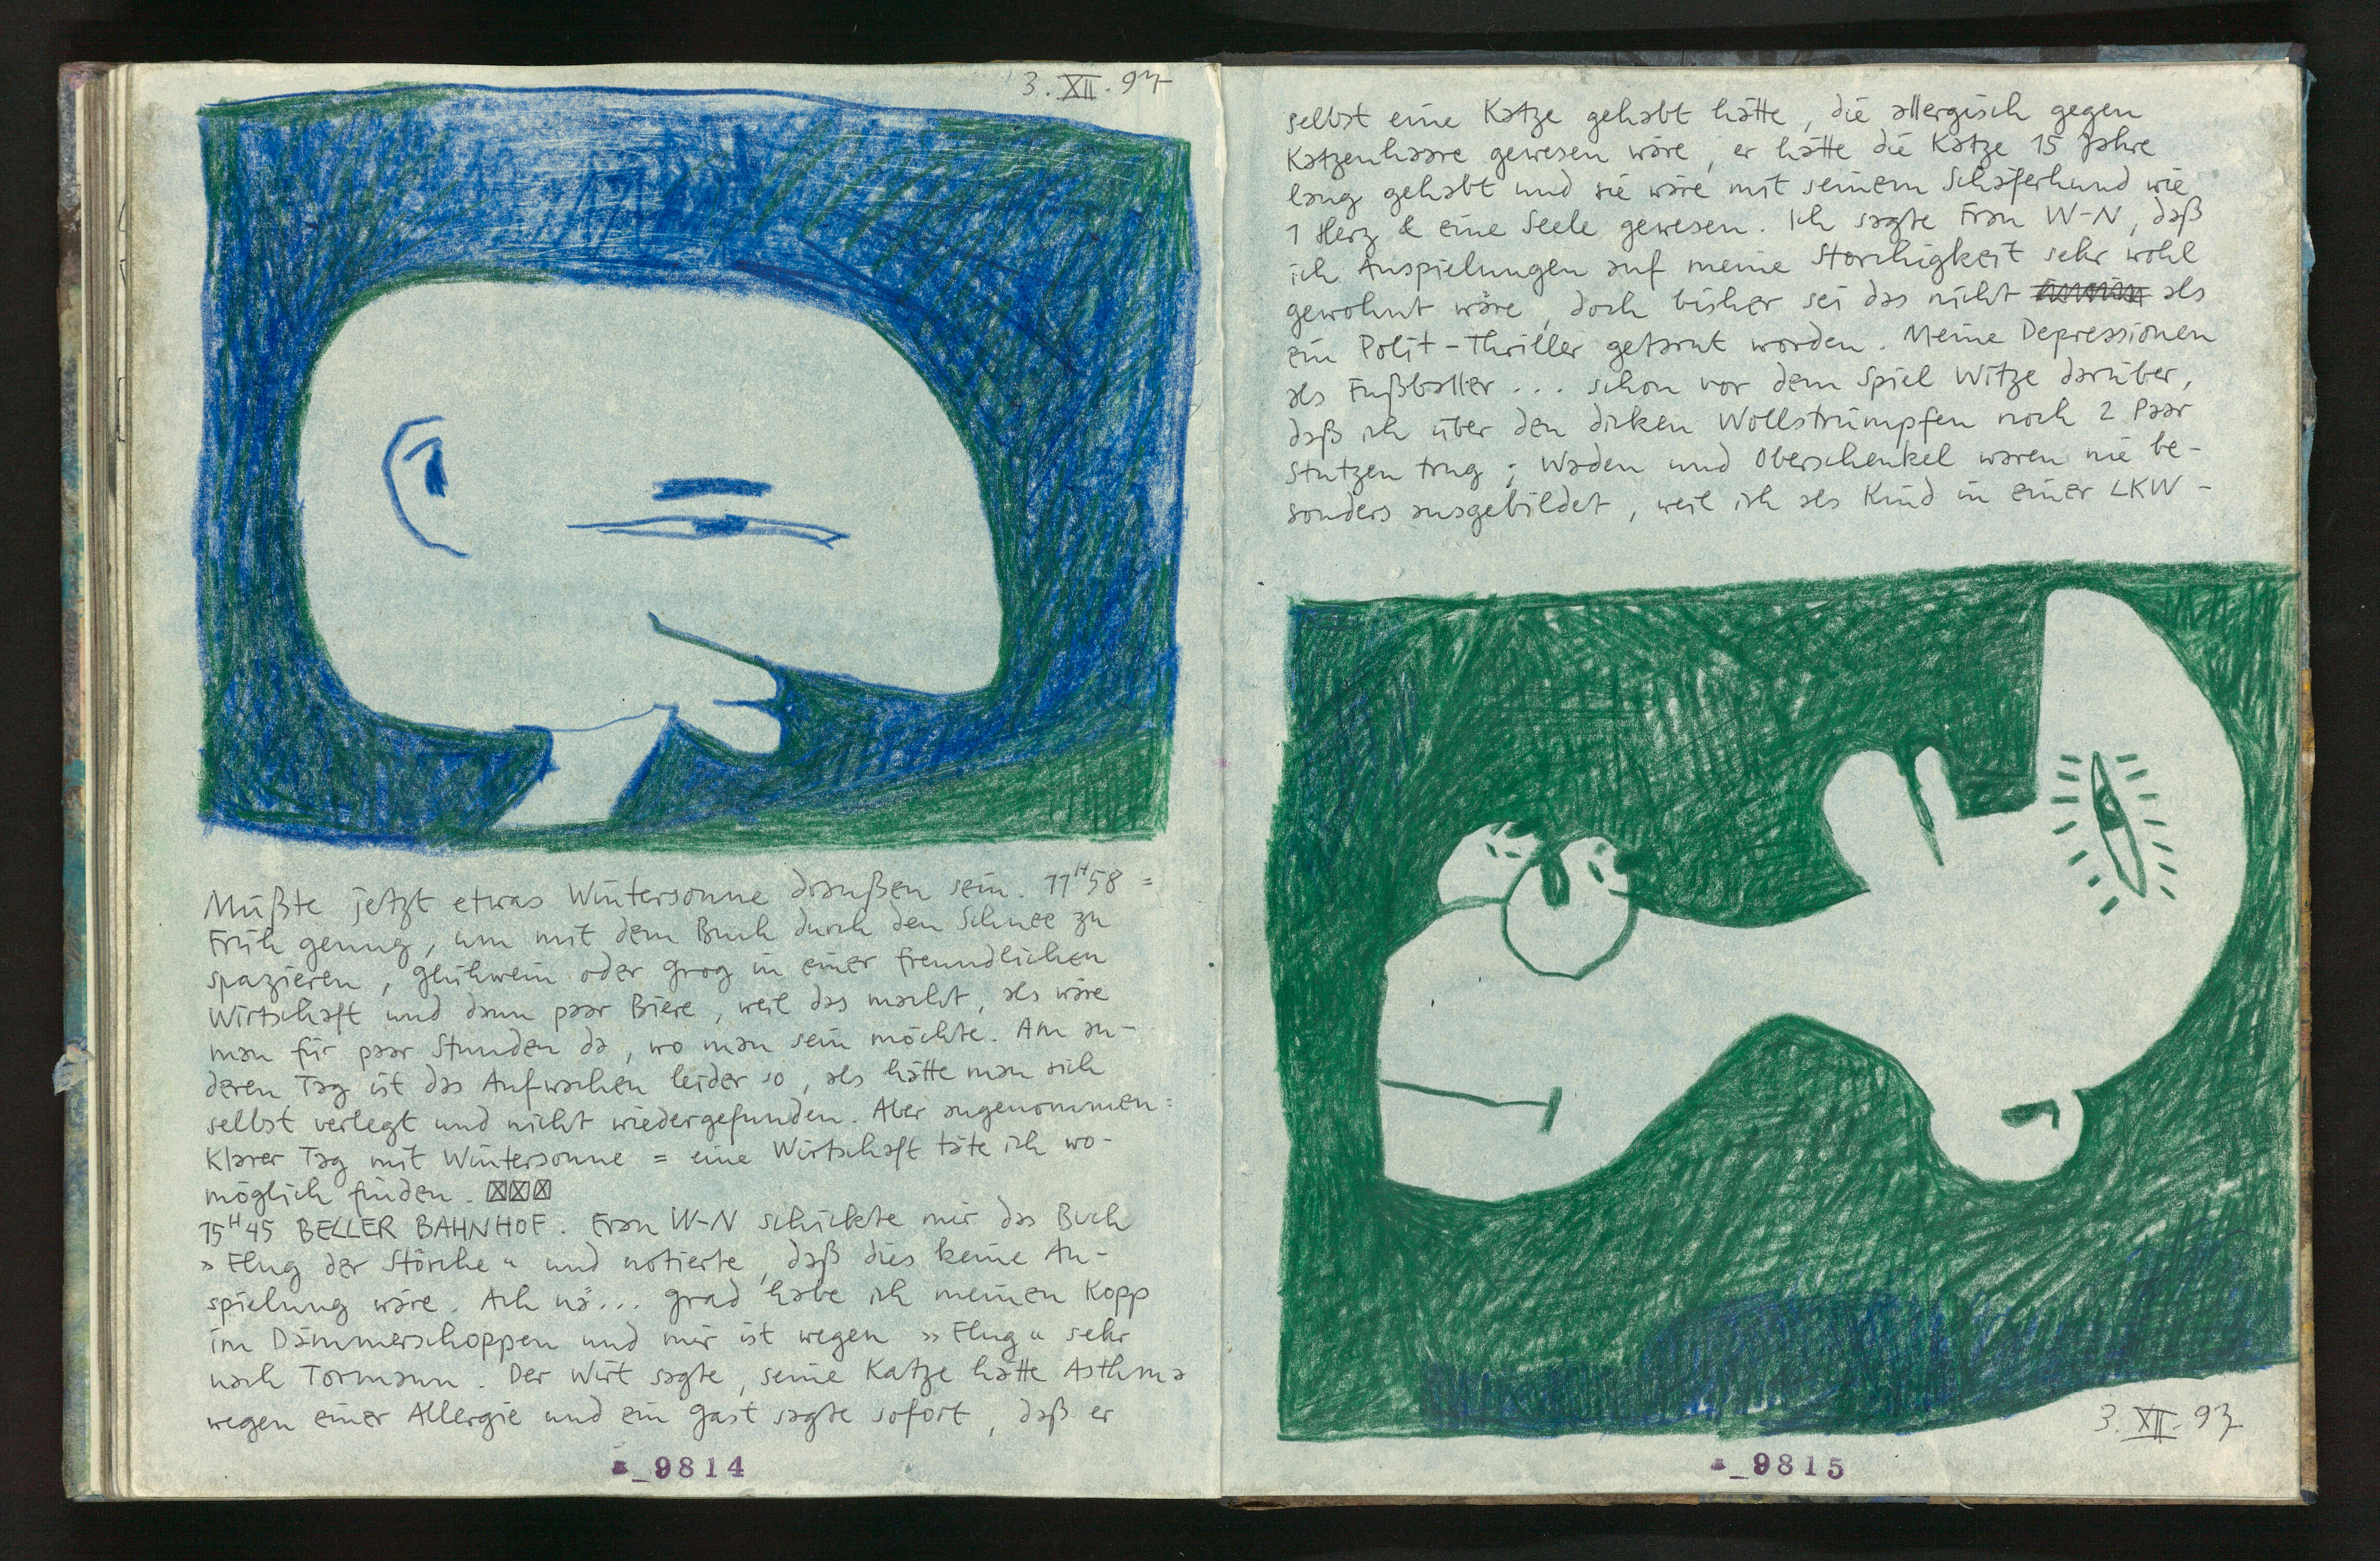 3. XII. 97
Müßte jetzt etwas Wintersonne draußen sein. 11H58 =
Früh genug, um mit dem Buch durch den Schnee zu
spazieren, Glühwein oder Grog in einer freundlichen
Wirtschaft und dann paar Biere, weil das macht, als wäre
man für paar Stunden da, wo man sein möchte. Am an-
deren Tag ist das Aufwachen leider so, als hätte man sich
selbst verlegt und nicht wiedergefunden. Aber angenommen =
Klarer Tag mit Wintersonne = eine Wirtschaft täte ich wo-
möglich finden. ☒☒☒
15H45 BELLER BAHNHOF. Frau W-N schickte mir das Buch
»Flug der Störche« und notierte, daß dies keine An-
spielung wäre. Ach nä... grad habe ich meinen Kopp
im Dämmerschoppen und mir ist wegen »Flug« sehr
nach Tormann. Der Wirt sagte, seine Katze hätte Asthma
wegen einer Allergie und ein Gast sagte sofort, daß er
_9814
selbst eine Katze gehabt hätte, die allergisch gegen
Katzenhaare gewesen wäre, er hätte die Katze 15 Jahre
lang gehabt und sie wäre mit seinem Schäferhund wie
1 Herz & eine Seele gewesen. Ich sagte Frau W-N, daß
ich Anspielungen auf meine Storchigkeit sehr wohl
gewohnt wäre, doch bisher sei das nicht als
ein Polit-Thriller getarnt worden. Meine Depressionen
als Fußballer... schon vor dem Spiel Witze darüber,
daß ich über den dicken Wollstrümpfen noch 2 Paar
Stutzen trug; Waden und Oberschenkel waren nie be-
sonders ausgebildet, weil ich als Kind in einer LKW-
3. XII. 97
_9815